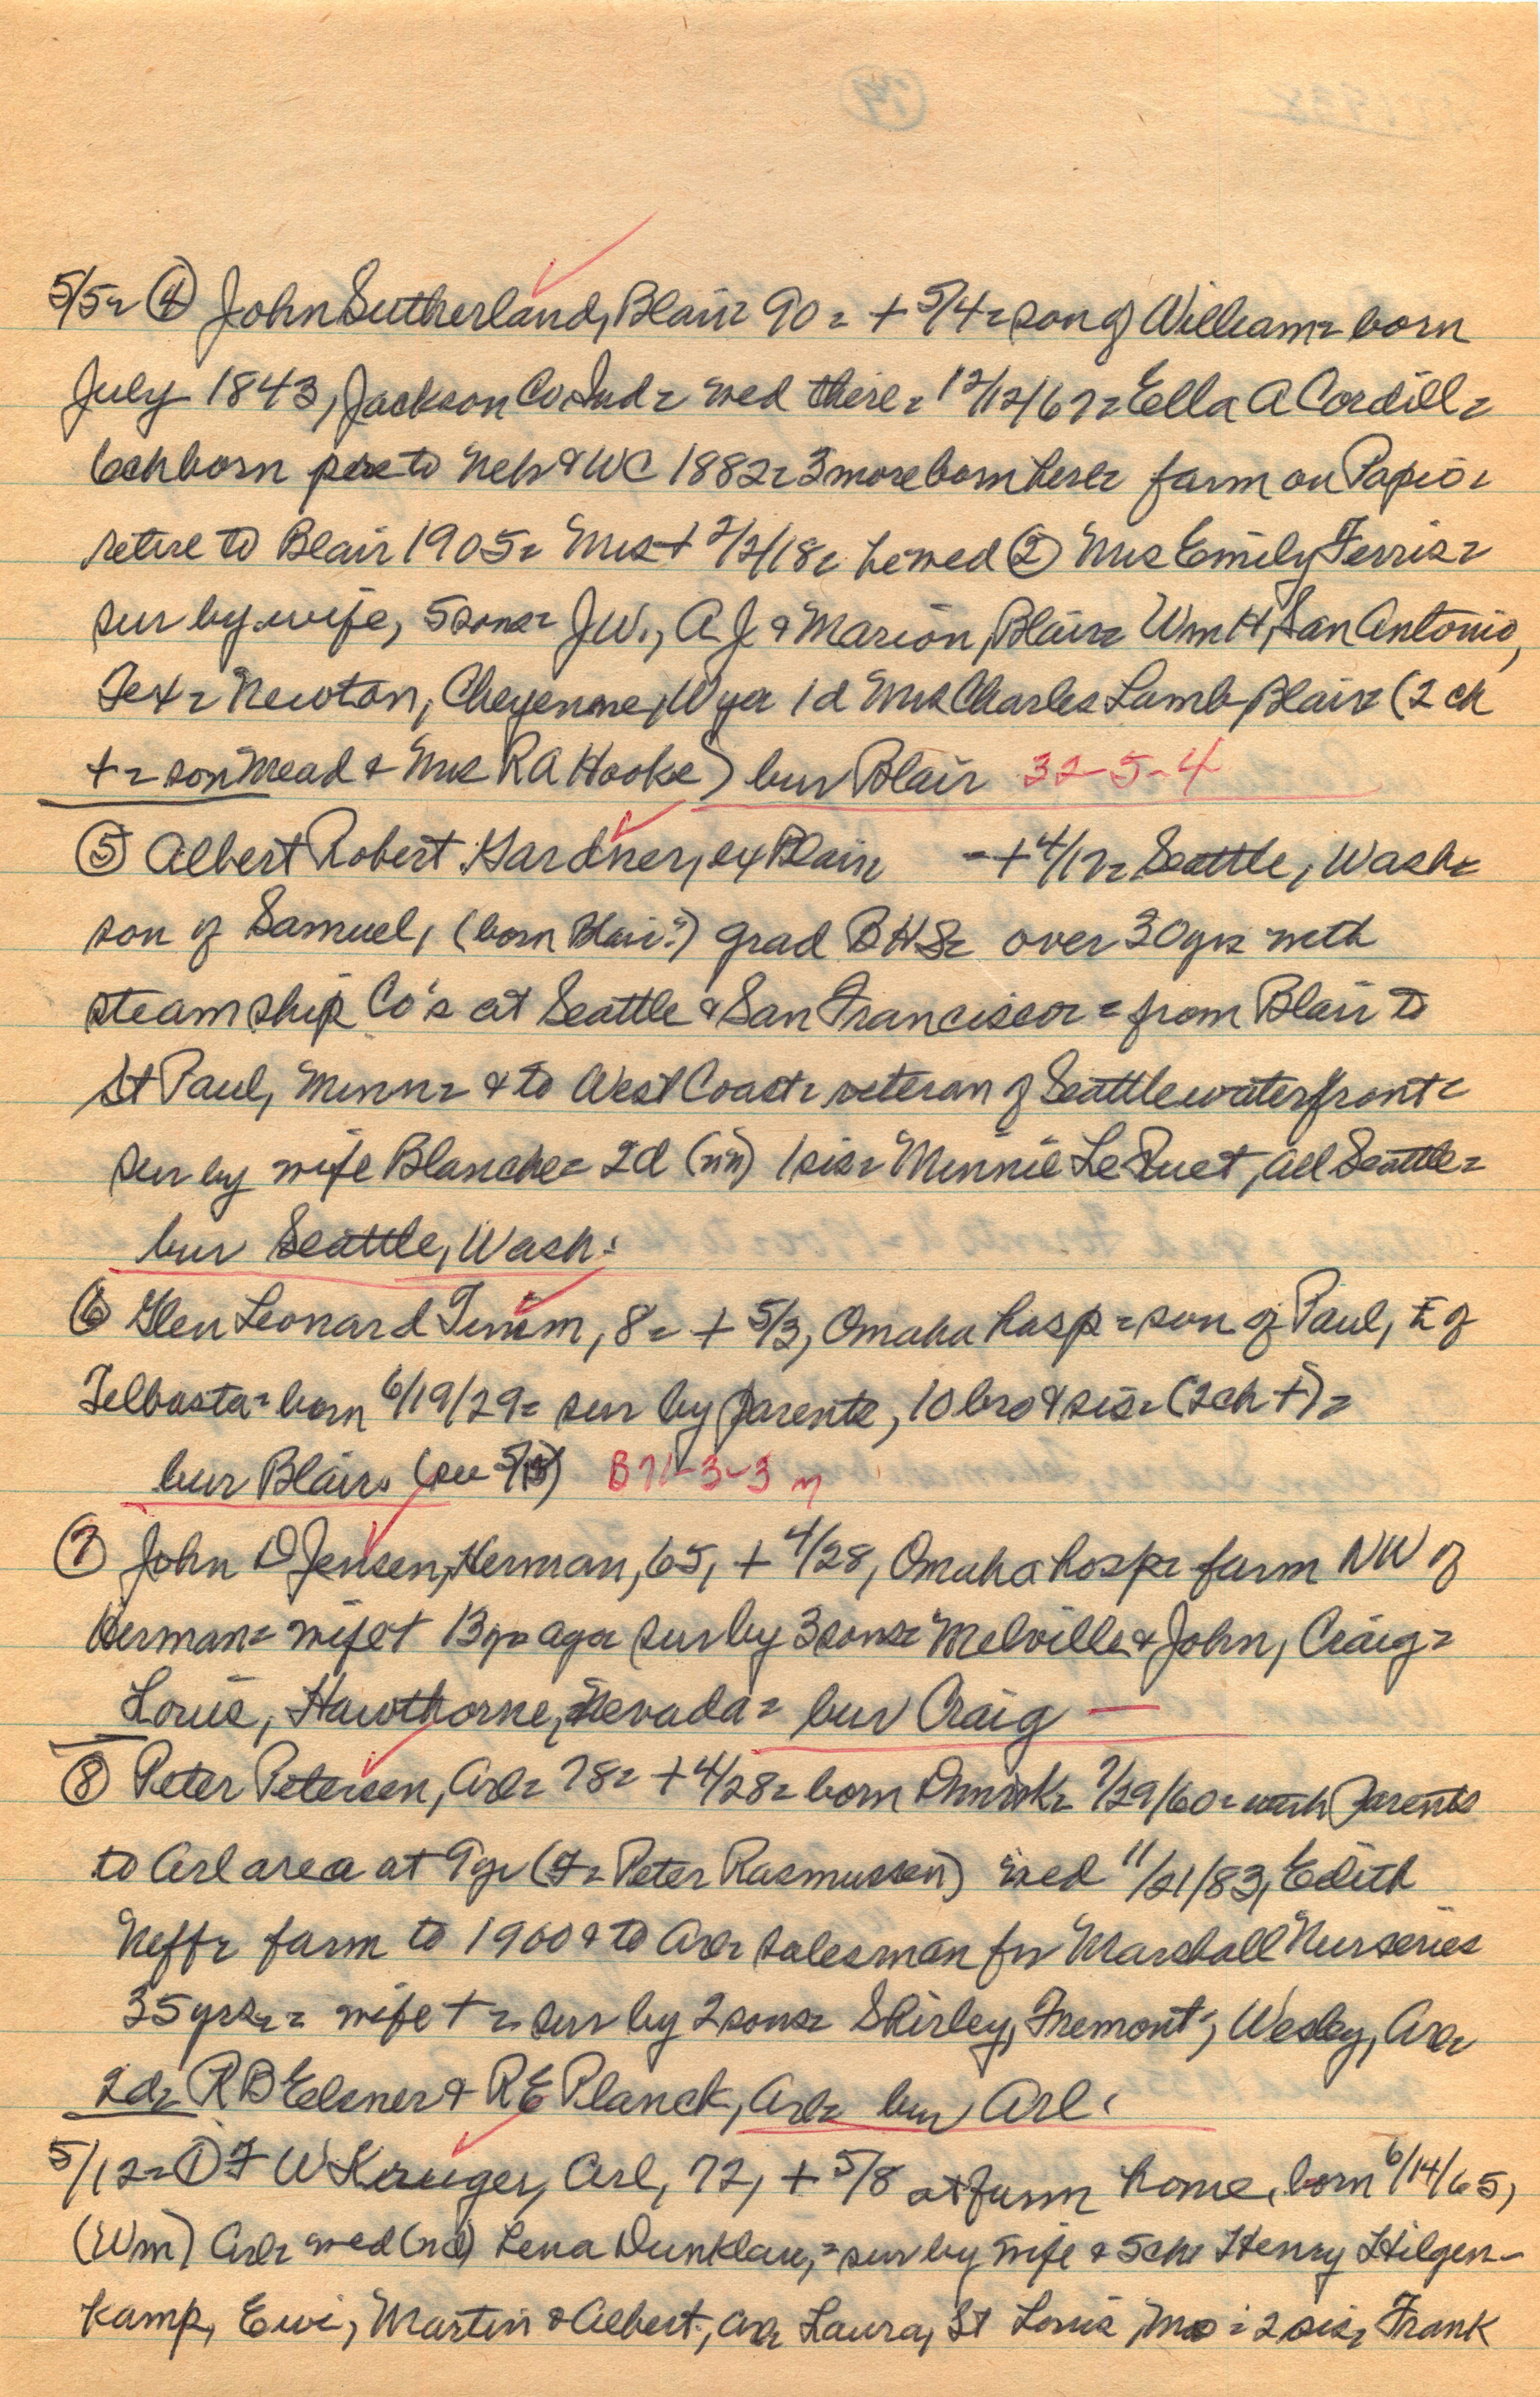 5/5= ④ John Sutherland, Blair= 90= + 5/4= son of William= born
July 1843, Jackson Co Ind= wed there= 12/12/67= Ella A Cordill=
6ch born to Neb & WC 1882= 3 more born here= farm on Papio=
retire to Blair 1905= Mrs + 2/2/18= he wed ② Mrs Emily Ferris=
sur by wife, 5 sons= J.W., A J & Marion, Blair= Wm H, San Antonio,
Tex= Newton, Cheyenne, Wyo= 1d Mrs Charles Lamb, Blair= (2 ch
+= son Mead & Mrs R A Hooke) bur Blair 32-5-4
⑤ Albert Robert Gardner, ex Blair =+ 4/17= Seattle, Wash=
son of Samuel, (born Blair?) grad BHS= over 30 yrs with
steamship Co's at Seattle & San Francisco= = from Blair to
St Paul, Minn= & to West Coast= veteran of Seattle waterfront=
sur by wife Blanche= 2d (nn) 1 sis= Minnie Le Suet, all Seattle=
bur Seattle, Wash:
⑥ Glen Leonard Timm, 8= + 5/3, Omaha hosp= son of Paul, E of
Telbasta= born 6/19/29= sur by parents, 10 bro & sis= (2ch +)=
bur Blair= (see 5/15) B71-3-3
⑦ John D Jensen, Herman, 65, + 4/28, Omaha hosp= farm NW of
Herman= wife + 13 yr ago= sur by 3 sons= Melville & John, Craig=
Louis, Hawthorne, Nevada= bur Craig —
⑧ Peter Petersen, Arl= 78= + 4/28= born Dnmrk= 7/29/60= with parents
to Arl area at 9yr (F= Peter Rasmussen) wed 11/21/83, Edith
Neff= farm to 1900 & to Arl= salesman for Marshall Nurseries
35 yrs== wife += sur by 2 sons= Shirley, Fremont; Wesley, Arl=
2d= R B Elsner & R E Planck, Arl= bur Arl.
5/12= ① F W Kruger, Arl, 72, + 5/8 at farm home, born 6/14/65,
(Wm) Arl= wed (nd) Lena Dunklau,= sur by wife & 5ch= Henry Hilgen-
kamp, Ewi, Martin & Albert, Arl= Laura, St Louis, Mo: 2 sis= Frank